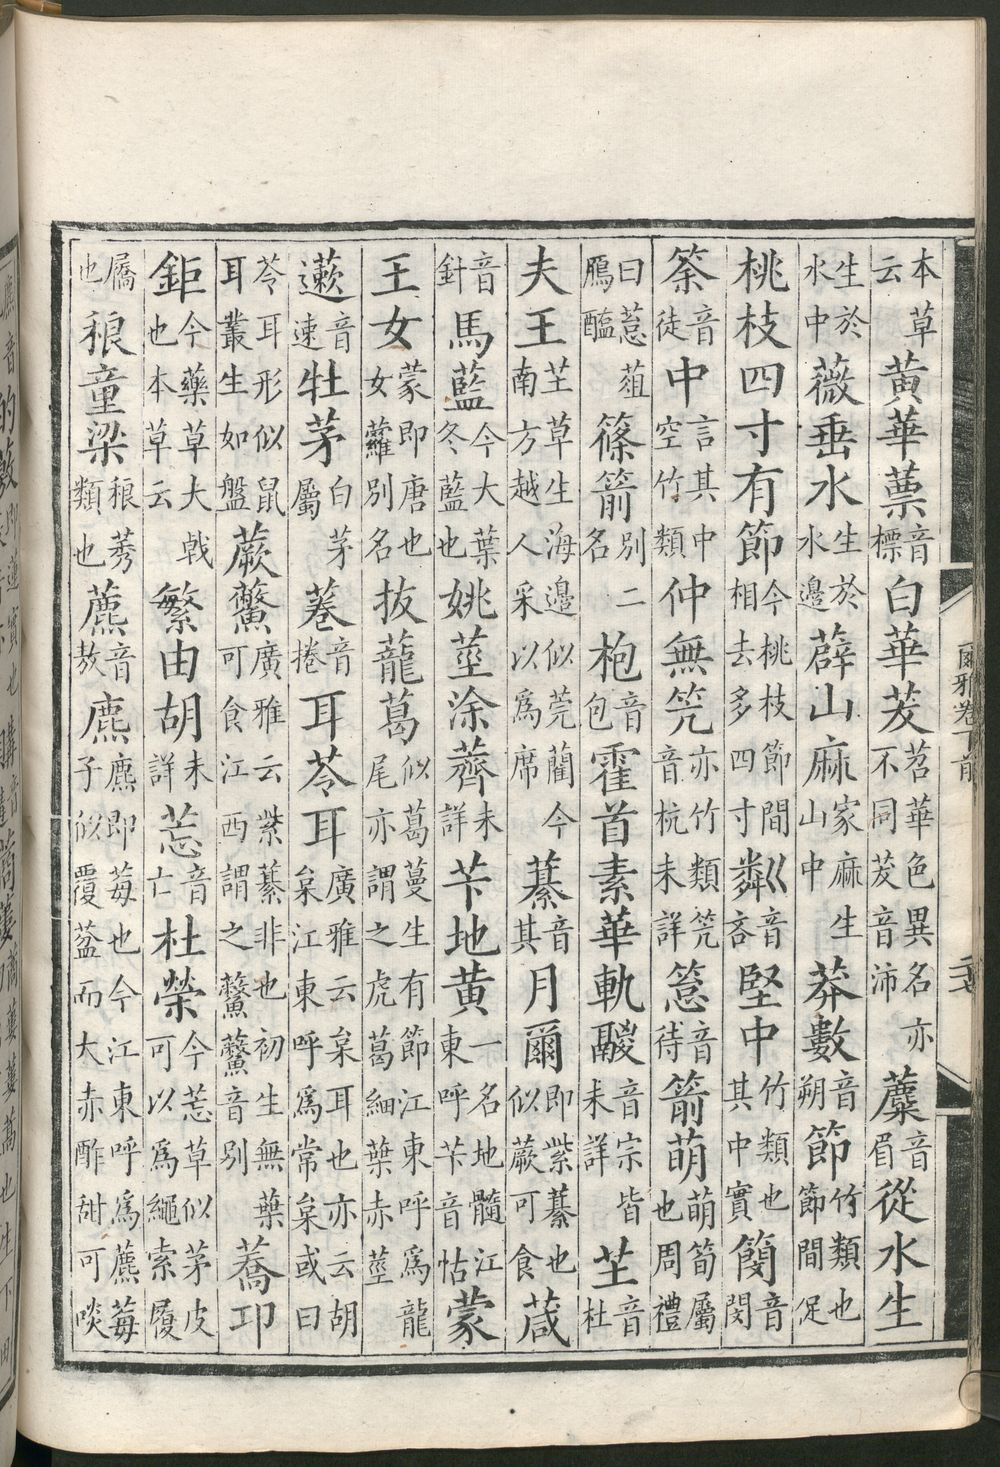 本草云黃華蔈音標白華茇苕華色異名亦不同茇音沛蘪音眉從水生
生於水中薇垂水生於水邊薜山麻家麻生山中莽數音朔節竹類也節間促
桃枝四寸有節今桃枝節間相去多四寸粼音吝堅中竹類也其中實簢音閔
筡音徒中言其中空竹類仲無笐亦竹類笐音杭未詳䈚音待箭萌萌筍屬也周禮
曰䈚菹鴈醢篠箭別二名枹音包霍首素華軌鬷音宗皆未詳芏音杜
夫王芏草生海邊似莞藺今南方越人采以爲席藄音其月爾即紫藄也似蕨可食葴
音針馬藍今大葉冬藍也姚莖涂薺未詳芐地黃一名地髓江東呼芐音怙蒙
王女蒙即唐也女蘿別名拔蘢葛似葛蔓生有節江東呼爲龍尾亦謂之虎葛細葉赤莖
藗音速牡茅白茅屬菤音捲耳苓耳廣雅云枲耳也亦云胡枲江東呼爲常枲或曰
苓耳形似鼠耳叢生如盤蕨虌廣雅云紫藄非也初生無葉可食江西謂之虌虌音別蕎邛
鉅今藥草大戟也本草云繁由胡未詳莣音亡杜榮今莣草似茅皮可以爲繩索履
屩也稂童梁稂莠類也藨音敖麃麃即莓也今江東呼爲藨莓子似覆葐而大赤酢甜可啖
爾雅卷下前